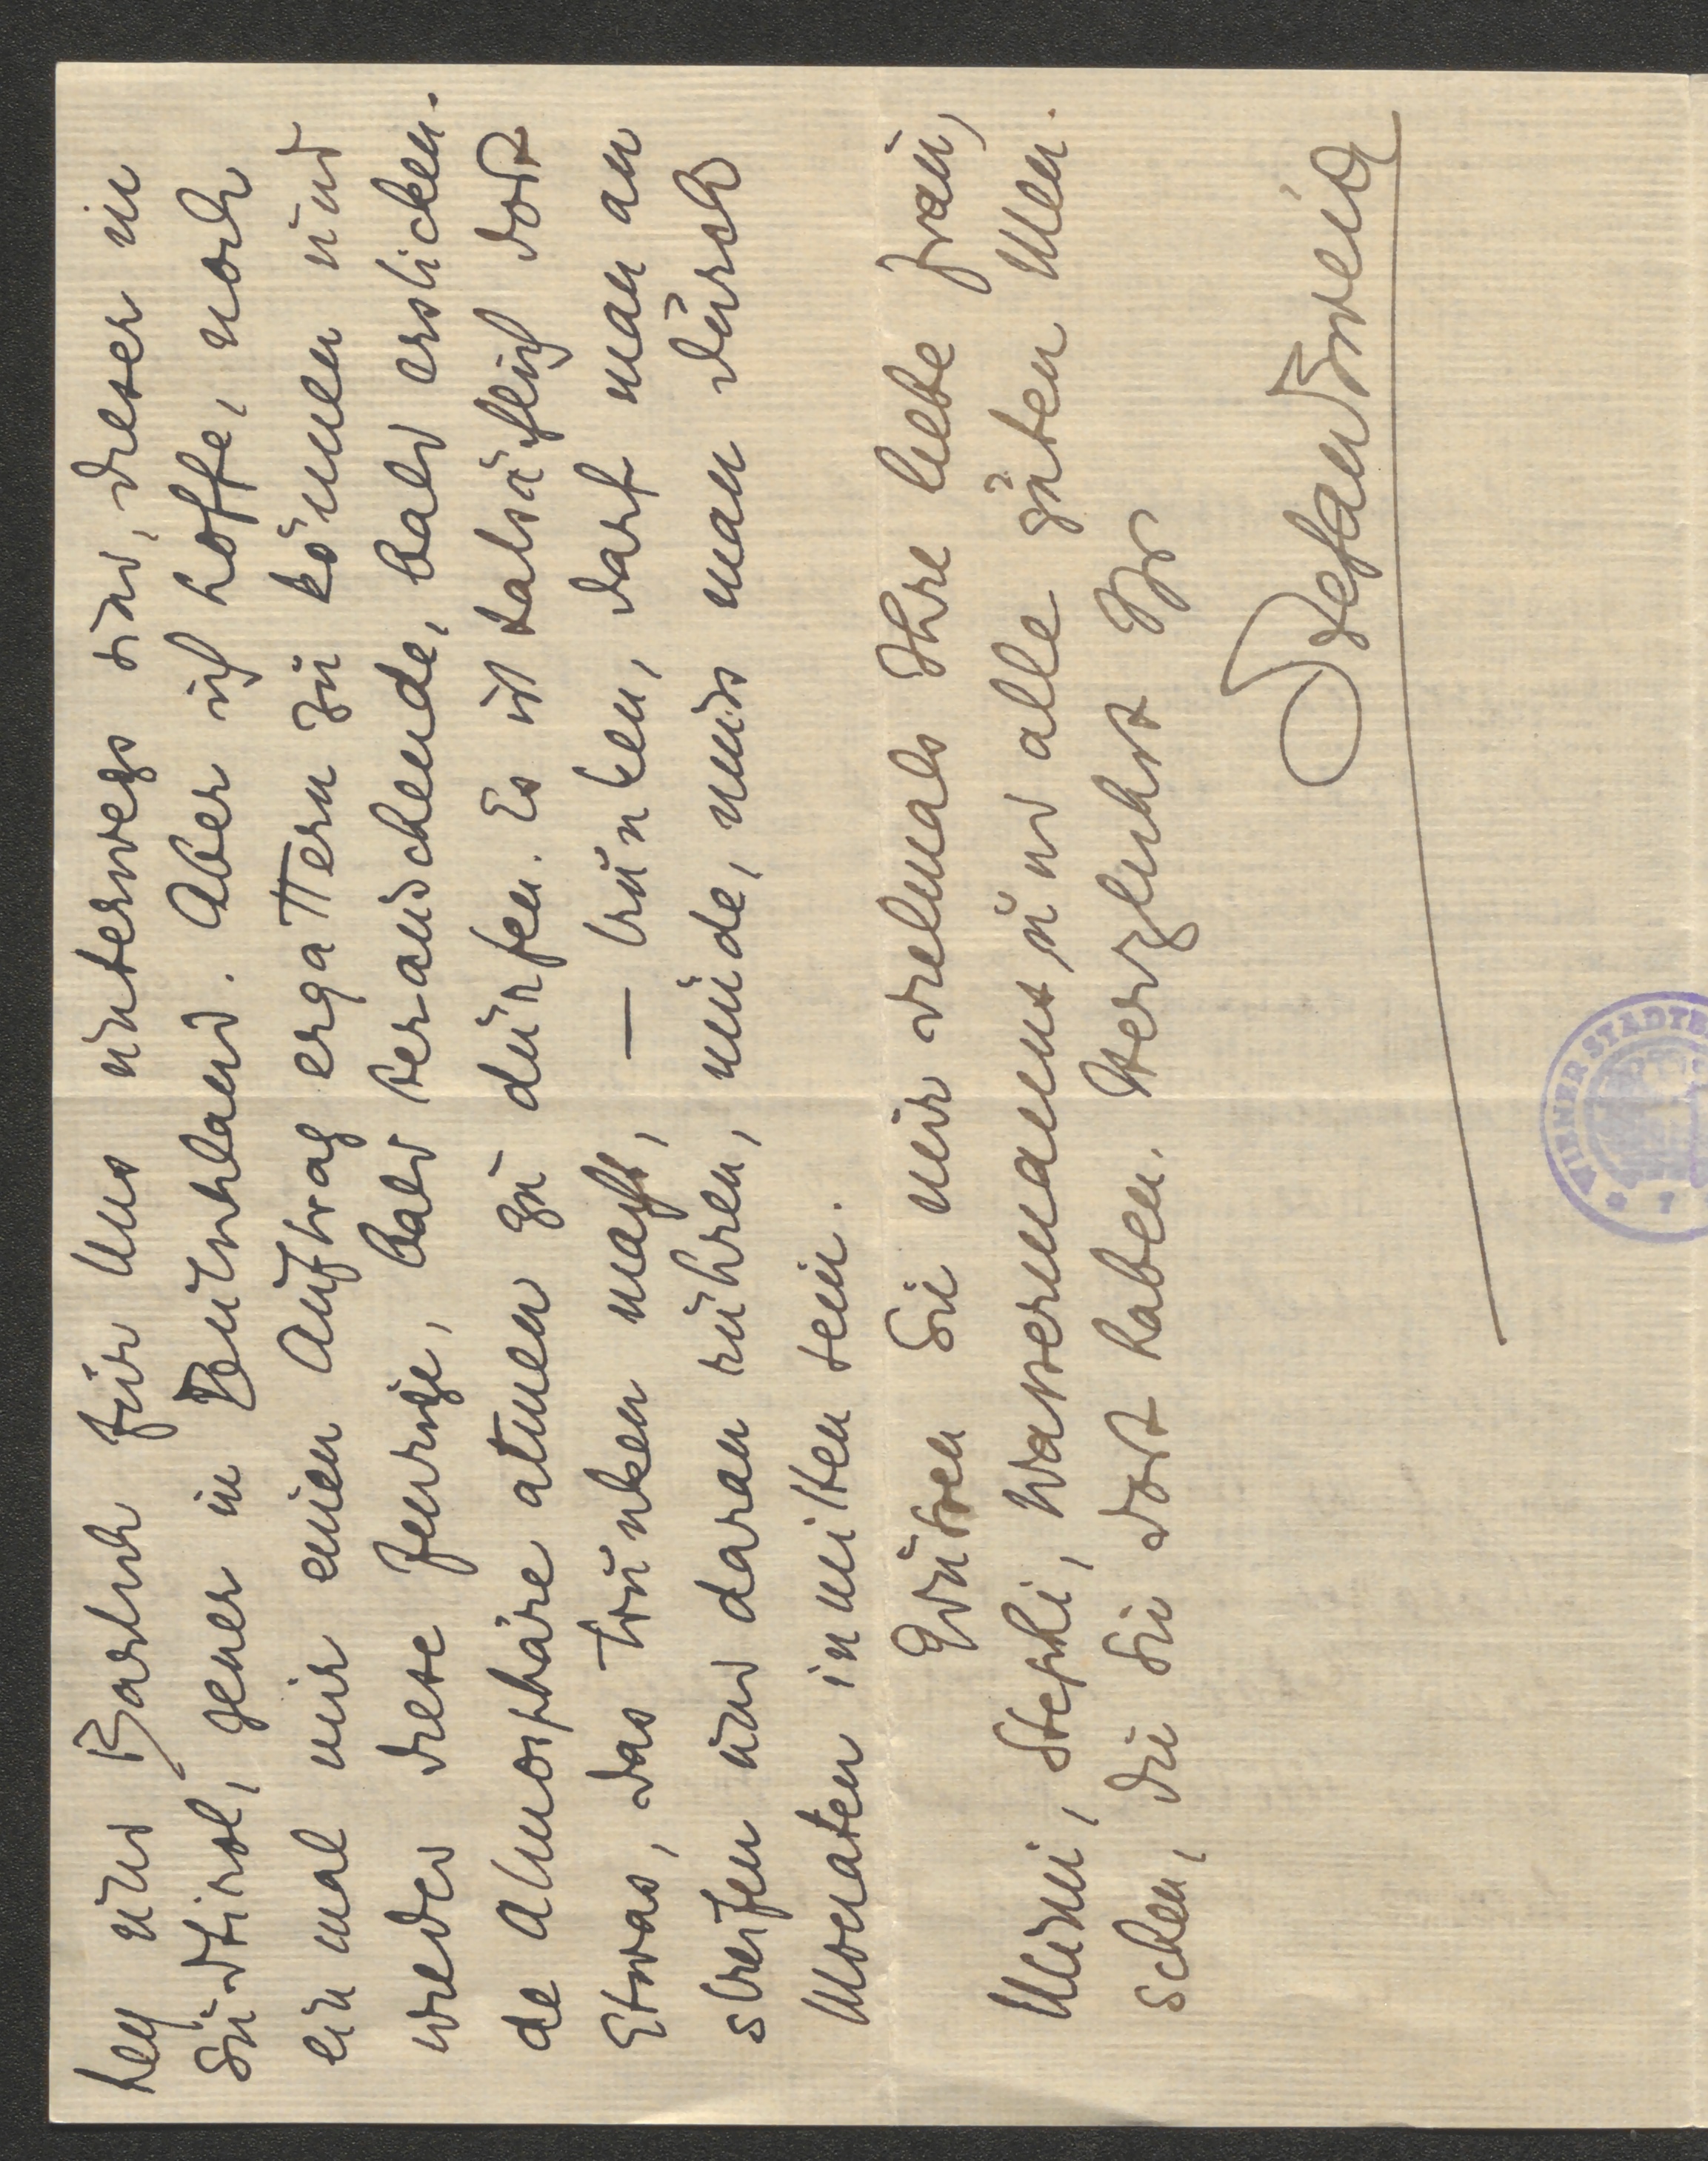 ley und Barbch für uns unterwegs sind, dieser in
Südtirol, jener in Deutschland. Aber ich hoffe, noch
einmal mir einen Auftrag ergattern zu können und
wieder diese fiebrige, bald berauschende, bald erstickende
Atmosphäre atmen zu dürfen. Es ist tatsächlich dort
Etwas, das trunken macht, – trunken, darf man an
streifen und daran rühren, müde, muss man durch
Monaten inmitten sein.
Grüssen Sie mir vielmals Ihre liebe Frau,
Mimi, Stephi, Wassermanns und alle guten Men
schen, die Sie dort haben. Herzlichst Ihr
Stefan Zweig
WIENER STÄDTI